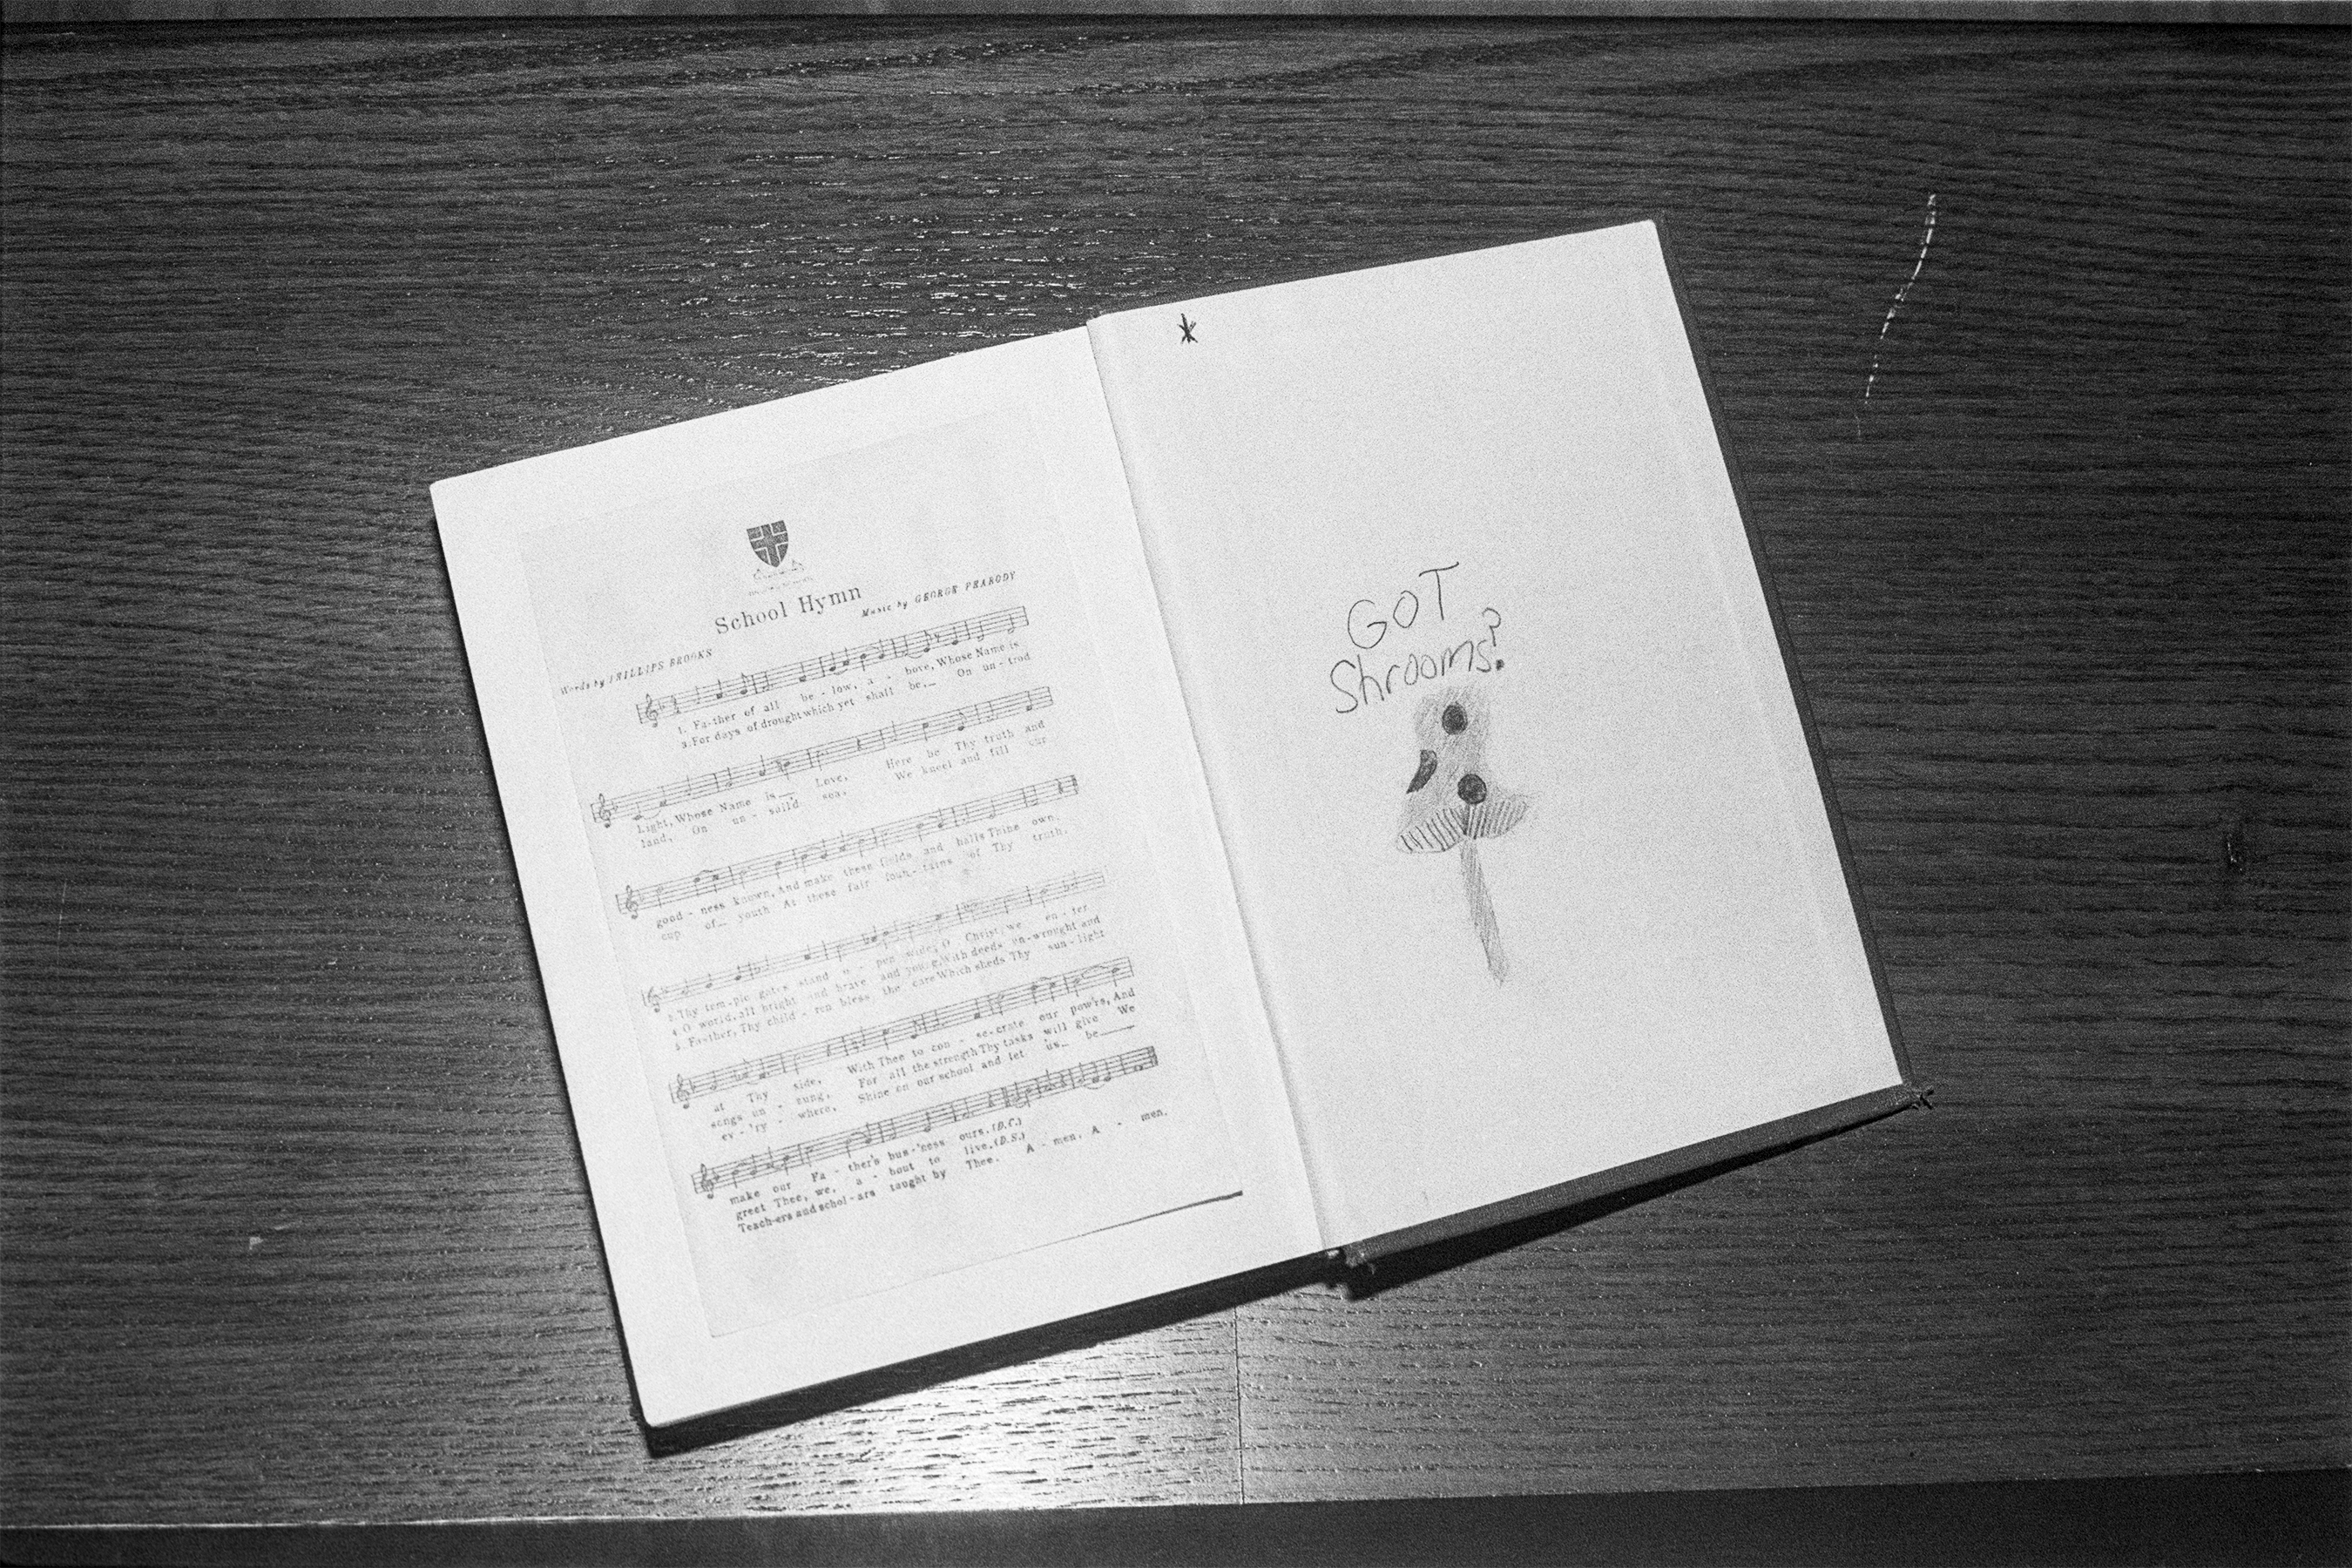 School Hymn
Words by PHILLIPS BROOKS
Music by GEORGE PEABODY
1. Fa-ther of all be - low, a - bove, Whose Name is
3. For days of drought which yet shall be, On un - trod
Light, Whose Name is Love, Here be Thy truth and
land, On un - sail'd sea. We kneel and fill our
good - ness known, And make these fields and halls Thine own.
cup of youth At these fair foun - tains of Thy truth.
2. Thy tem-ple gates stand o - pen wide; O Christ, we en - ter
4. O world, all bright and brave and young, With deeds un-wrought and
5. Fa-ther, Thy child - ren bless, the care Which sheds Thy sun - light
at Thy side, With Thee to con - se-crate our pow'rs, And
songs un - sung, For all the strength Thy tasks will give We
ev - 'ry - where, Shine on our school and let us be
make our Fa - ther's bus-'ness ours. (D.C.)
greet Thee, we, a - bout to live. (D.S.)
Teach-ers and schol-ars taught by Thee. A - men, A - men.
GOT
Shrooms?